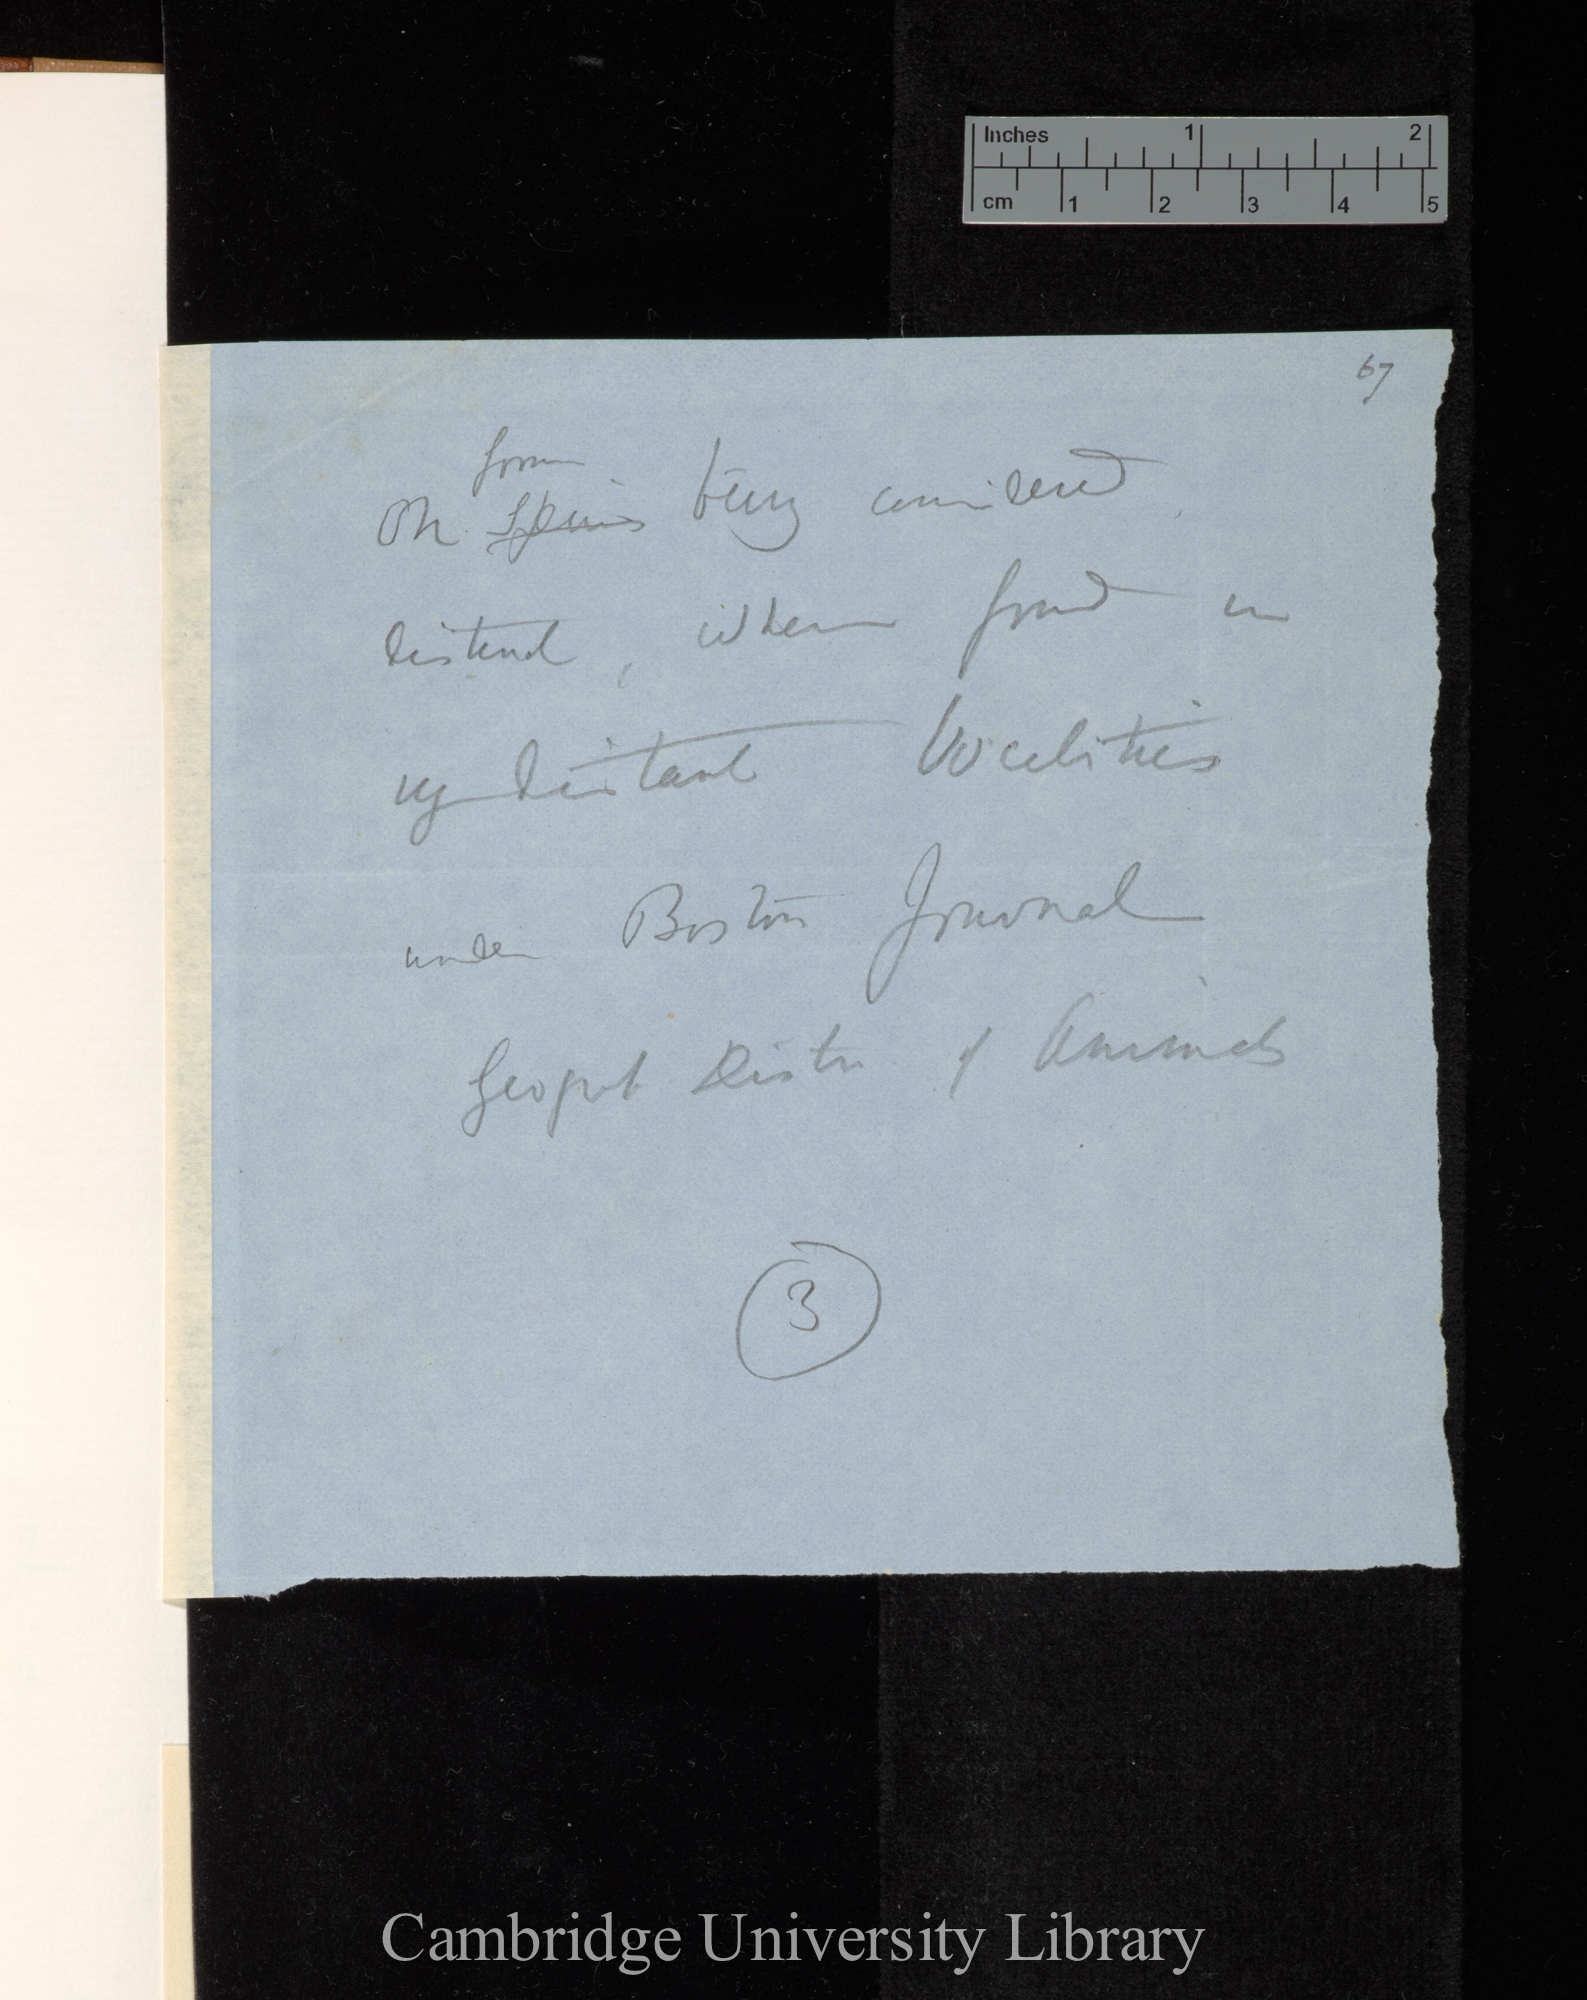 Inches 1 2
cm 1 2 3 4 5
67
form
On species being considered
distinct, when found in
very distant localities
under Boston Journal
Geograph Distr of Animals
3
Cambridge University Library